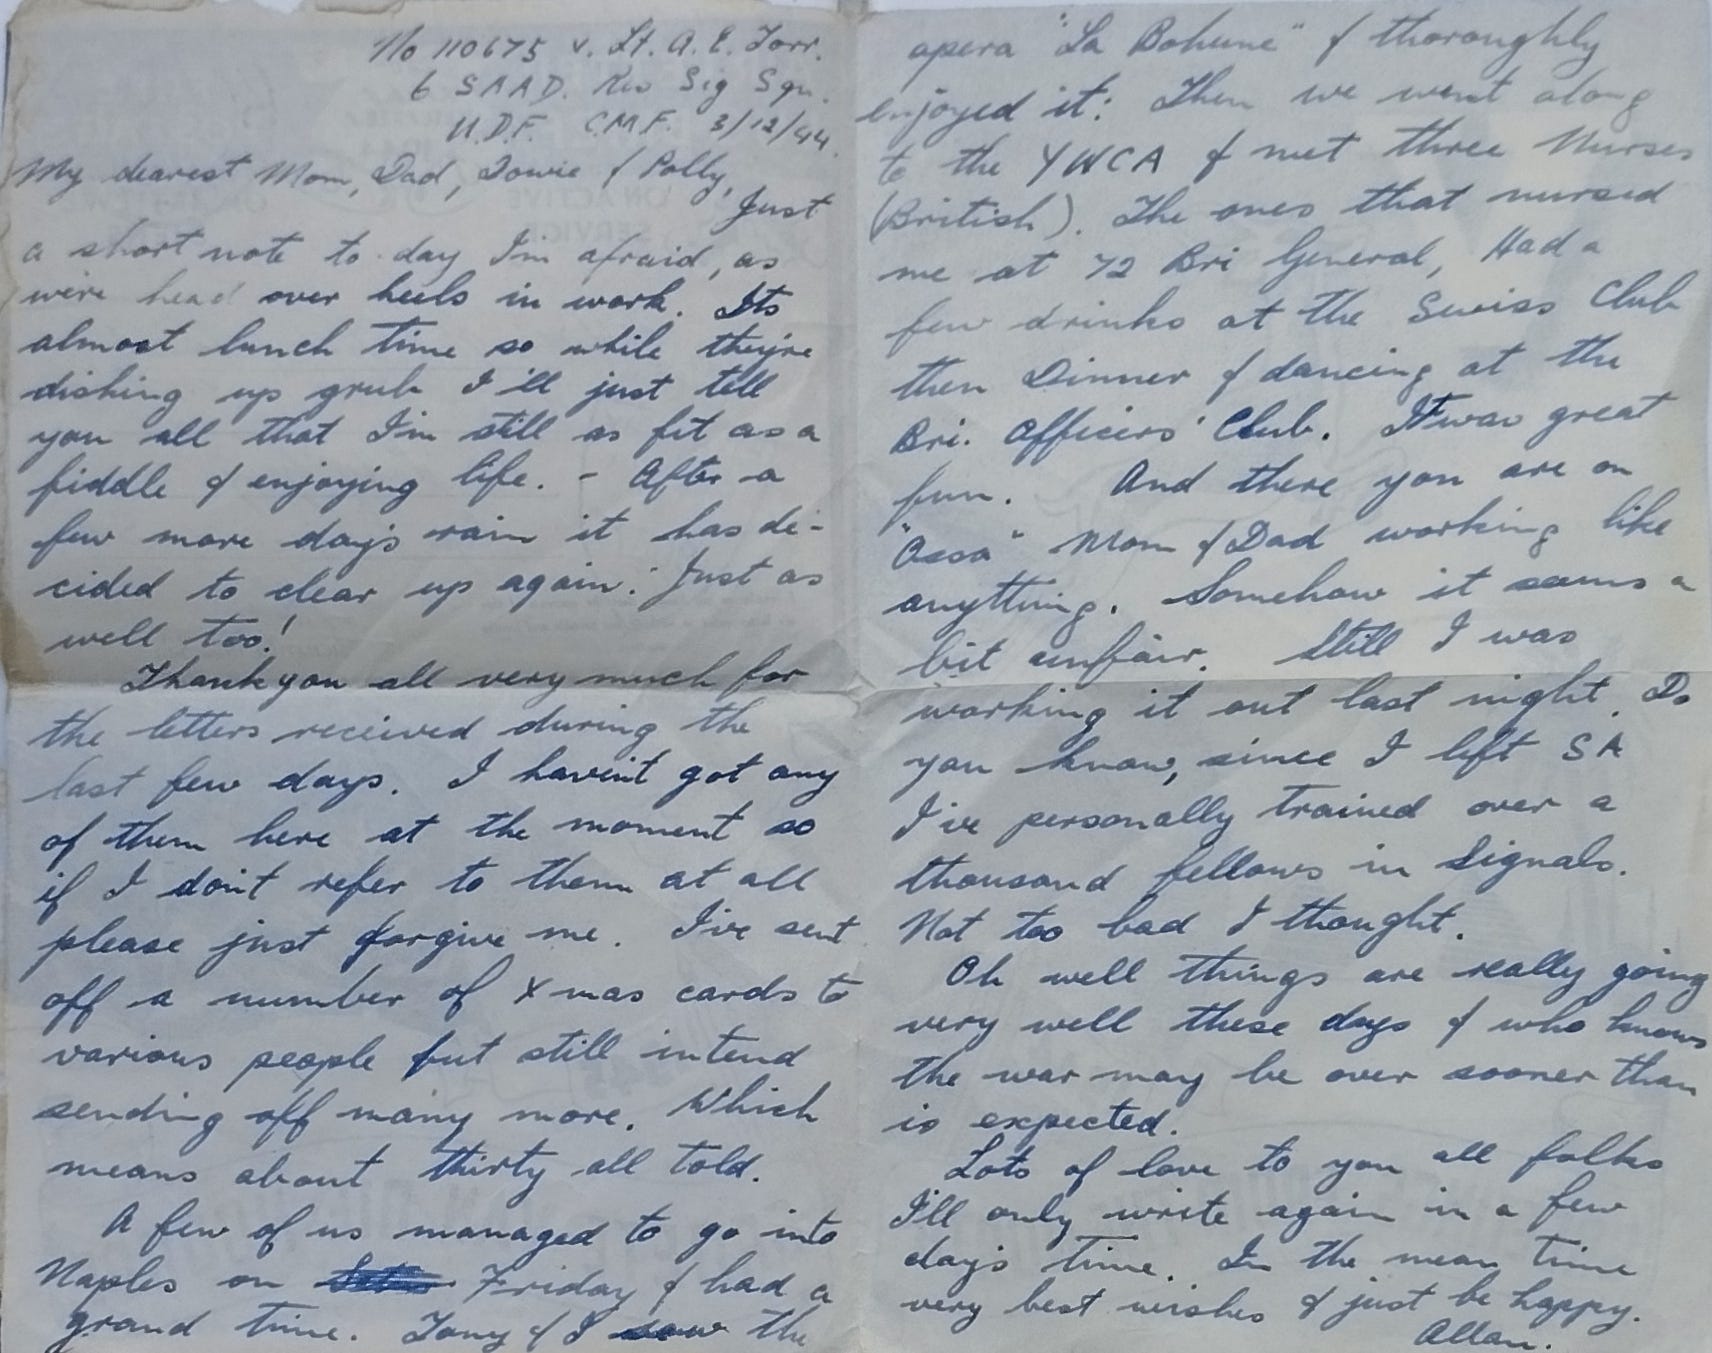 No 110675 v. Lt. A. E. Torr.
6 SAAD. Rec Sig Sqn.
U.D.F. C.M.F. 3/12/44.
My dearest Mom, Dad, Towie & Polly,
Just
a short note to day I'm afraid, as
we're head over heels in work. Its
almost lunch time so while they're
dishing up grub I'll just tell
you all that I'm still as fit as a
fiddle & enjoying life. - After a
few more days rain it has de-
cided to clear up again: Just as
well too!
Thank you all very much for
the letters received during the
last few days. I haven't got any
of them here at the moment so
if I don't refer to them at all
please just forgive me. I've sent
off a number of Xmas cards to
various people but still intend
sending off many more. Which
means about thirty all told.
A few of us managed to go into
Naples on Friday & had a
grand time. Tony & I saw the
opera "La Bohune" & thoroughly
enjoyed it: Then we went along
to the YWCA & met three Nurses
(British). The ones that nursed
me at 72 Bri General, Had a
few drinks at the Swiss Club
then Dinner & dancing at the
Bri. Officers' Club. It was great
fun. And there you are on
"Ossa" Mom & Dad working like
anything. Somehow it seems a
bit unfair. Still I was
working it out last night. Do
you know, since I left SA
I've personally trained over a
thousand fellows in Signals.
Not too bad I thought.
Oh well things are really going
very well these days & who knows
the war may be over sooner than
is expected.
Lots of love to you all folks
I'll only write again in a few
days time. In the mean time
very best wishes & just be happy.
Allan.